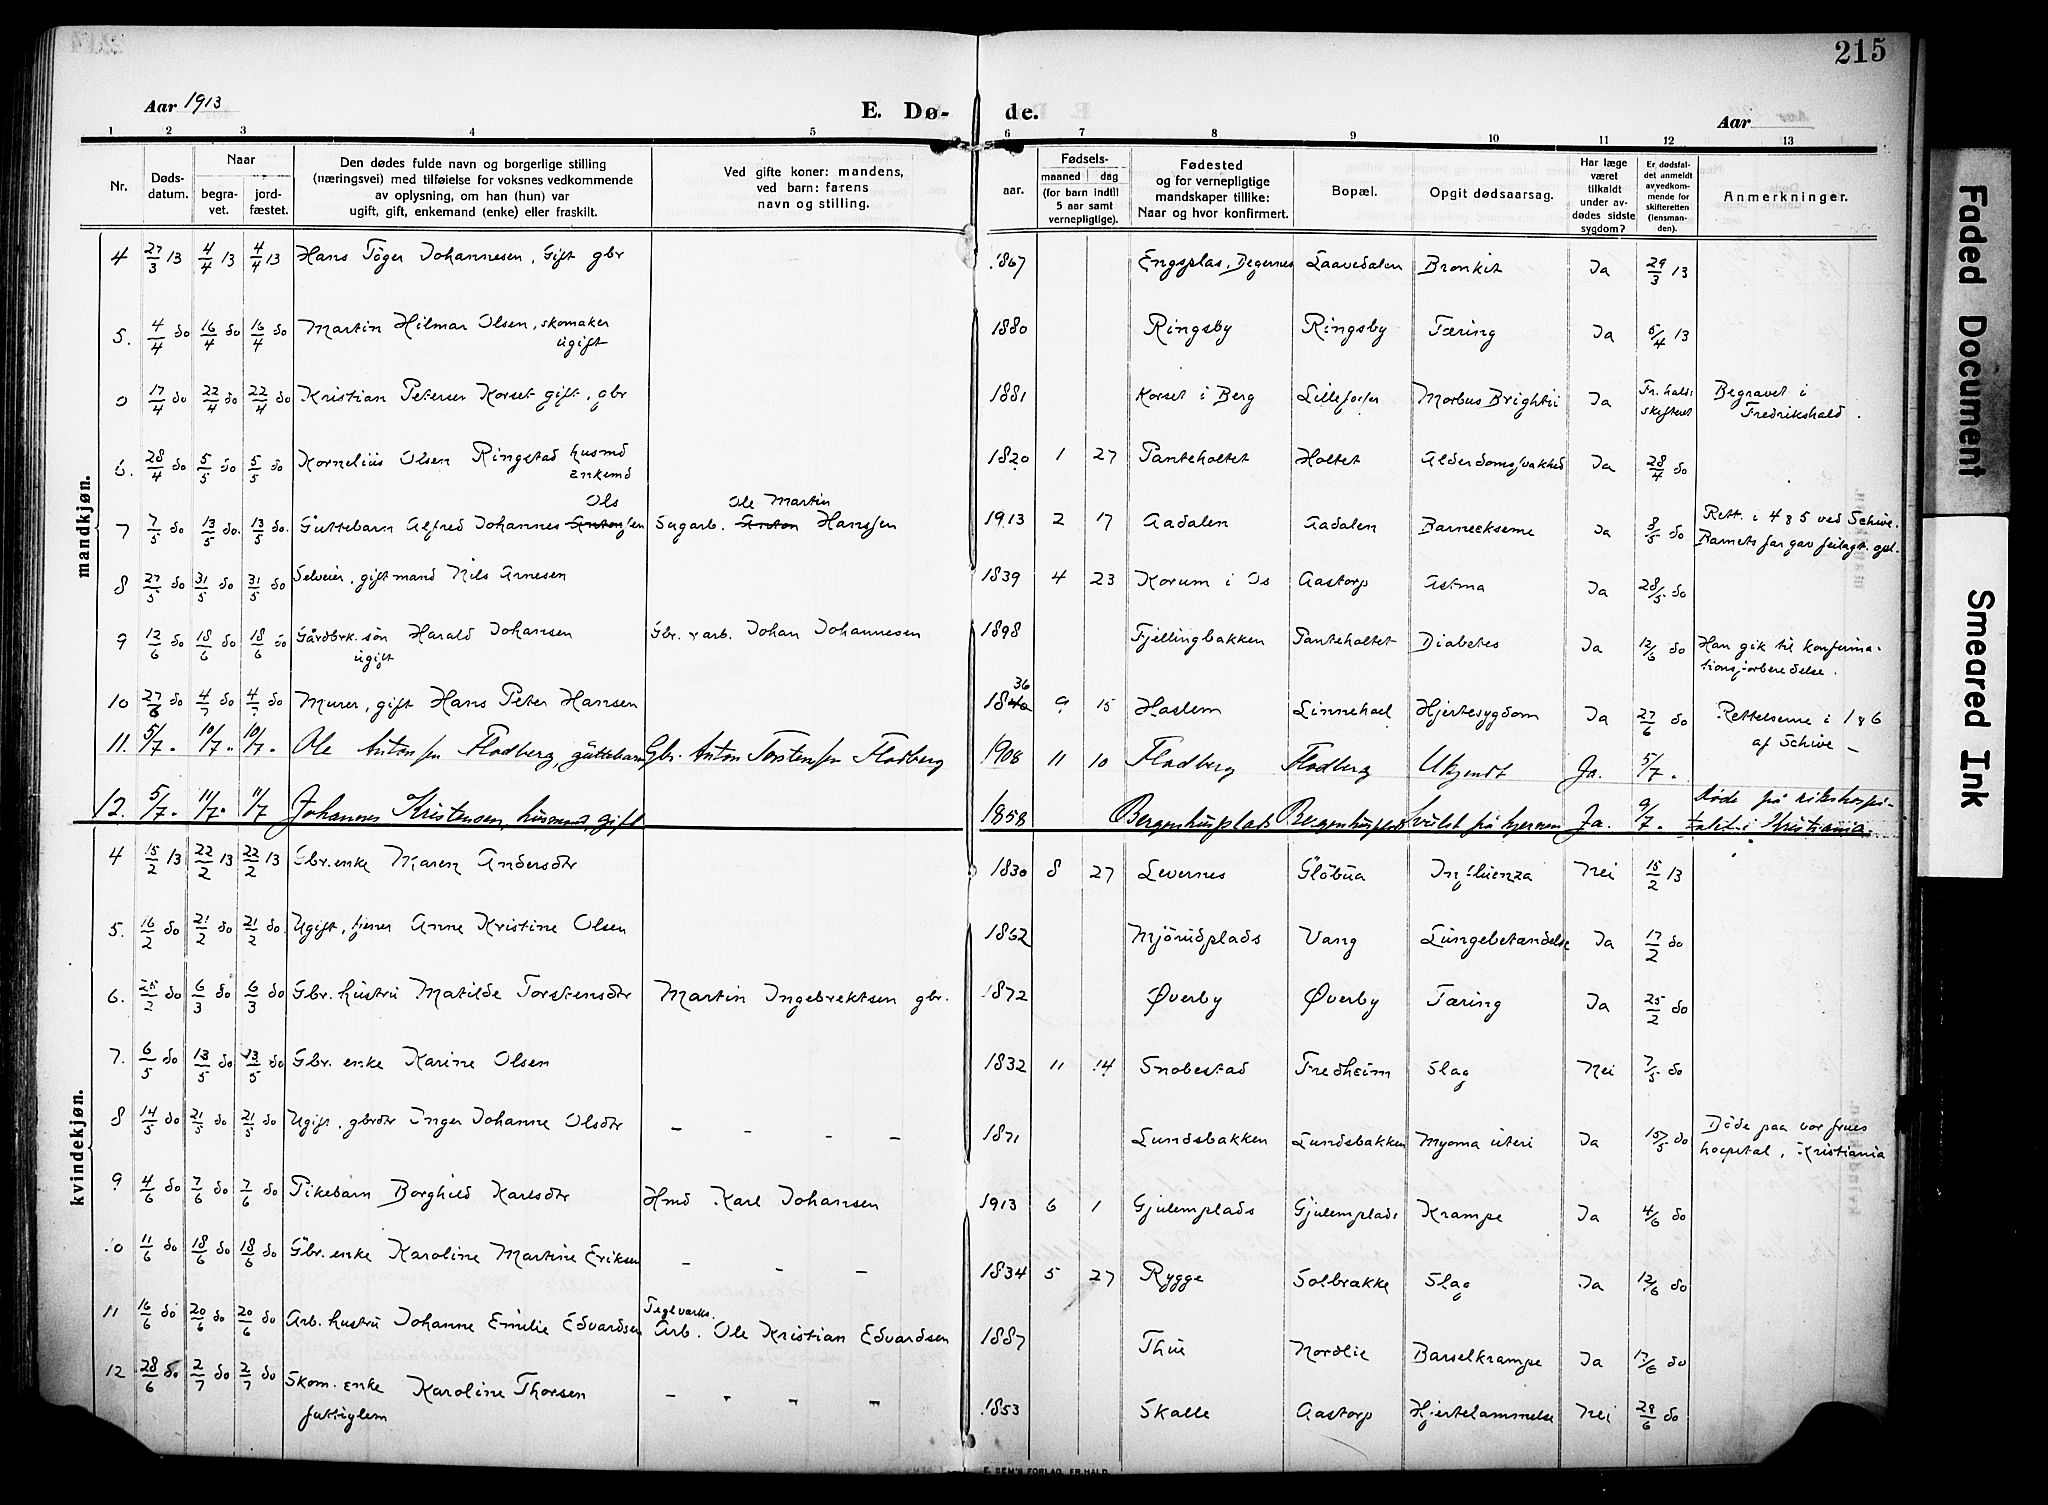 215
Aar 1913
E. Dø- de.
Aar
1 2 3 4 5 6 7 8 9 10 11 12 13
Nr.
Døds-
datum.
Naar
begra-
vet.
jord-
fæstet.
Den dødes fulde navn og borgerlige stilling
(næringsvei) med tilføielse for voksnes vedkommende
av oplysning, om han (hun) var
ugift, gift, enkemand (enke) eller fraskilt.
Ved gifte koner: mandens,
ved barn: farens
navn og stilling.
Fødsels-
aar.
maaned dag
(for barn indtil
5 aar samt
vernepligtige).
Fødested
og for vernepligtige
mandskaper tillike:
Naar og hvor konfirmert.
Bopæl.
Opgit dødsaarsag.
Har læge
været
tilkaldt
under av-
dødes sidste
sygdom?
Er dødsfal-
det anmeldt
av vedkom-
mende for
skifteretten
(lensman-
den).
Anmerkninger.
mandkjøn.
4 27/3 13 4/4 13 4/4 13 Hans Töger Johannesen, Gift gbr 1867 Engsplas, Degernes Laavedalen Bronkit Ja 29/3 13
5. 4/4 do 16/4 do 16/4 do Martin Hilmar Olsen, skomaker ugift 1880 Ringsby Ringsby Tæring Ja 5/4 13
0 17/4 do 22/4 do 22/4 do Kristian Petersen Korset gift, gbr 1881 Korset i Berg Morbus Brightii Ja Fr.halds skifteret Begravet i
Fredrikshald.
6. 28/4 do 5/5 do 5/5 do Kornelius Olsen Ringstad husmd enkemd 1820 1 27 Panteholtet Holtet Alderdomssvakhed Ja 28/4 do
7 7/5 do 13/5 do 13/5 do. Guttebarn Alfred Johannes Anton Olssen Sagarb. Anton Ole Martin Hanssen 1913 2 17 Aadalen Aadalen Barneekseme Ja 8/5 do Rett. i 4 & 5 ved Schive.
Barnets far gav feilagt. opl.
8 27/5 do 31/5 do 31/5 do Selveier, gift mand Nils Arnesen 1839 4 23 Korum i Os Aastorp Astma Ja 28/5 do
9 12/6 do 18/6 do 18/6 do Gårdbrk. sön Harald Johansen ugift Gbr. & arb. Johan Johannesen 1898 Fjellingbakken Panteholtet Diabetes Ja 12/6 do Han gik til konfirma-
tionsforberedelse.
10 27/6 do 4/7 do 4/7 do Murer, gift Hans Peter Hansen 1840 36 9 15 Haslem Hjertesygdom Ja 27/6 do Rettelserne i 1 & 6
af Schive –
11. 5/7 " 10/7 " 10/7 " Ole Antonsen Fladberg, guttebarn Gbr. Anton Torstensen Fladberg 1908 11 10 Fladberg Fladberg Ukjendt Ja. 5/7 "
12. 5/7 " 11/7 " 11/7 Johannes Kristensen, husmand, gift 1858 Bergenhusplads Bergenhusplads Svulst på hjernen Ja. 9/7 " Døde på rikshospi-
talet i Kristiania.
kvindekjøn.
4 15/2 13 22/2 13 22/2 13 Gbr. enke Maren Andersdtr 1830 8 27 Levernes Glöbua Influenza Nei 15/2 13
5. 16/2 do 21/2 do 21/2 do Ugift, tjener Anne Kristine Olsen 1862 Mjörudplads Vang Lungebetændelse Ja 17/2 do
6. 25/2 do 6/3 do 6/3 do Gbr. hustru Matilde Torstensdtr Martin Ingebrektsen gbr. 1872 Øverby Øverby Tæring Ja 25/2 do
7. 6/5 do 13/5 do 13/5 do Gbr. enke Karine Olsen 1832 11 14 Snobestad Fredheim Slag Nei 7/5 do
8 14/5 do 21/5 do 21/5 do Ugift, gbrdtr Inger Johanne Olsdtr – – – – 1871 Lundsbakken Lundsbakken Myoma uteri Ja 15/5 do Döde paa vor frues
hospital, Kristiania
9 4/6 do 7/6 do 7/6 do Pikebarn Borghild Karlsdtr Hmd Karl Johansen 1913 6 1 Gjulemplads Gjulemplads Krampe Ja 4/6 do
10 11/6 do 18/6 do 18/6 do Gbr. enke Karoline Martine Eriksen – – – 1834 5 27 Rygge Solbrække Slag Ja 12/6 do
11 16/6 do 20/6 do 20/6 do Arb. hustru Johanne Emilie Edvardsen Teglverks. Arb. Ole Kristian Edvardsen 1887 Thue Nordlie Barselkrampe Ja 17/6 do
12 28/6 do 2/7 do 2/7 do Skom. enke Karoline Thorsen fattiglem – – – – 1853 Skalle Aastorp Hjertelammelse Nei 28/6 do
E. SEM'S FORLAG, FR.HALD.
Faded Document
Smeared Ink